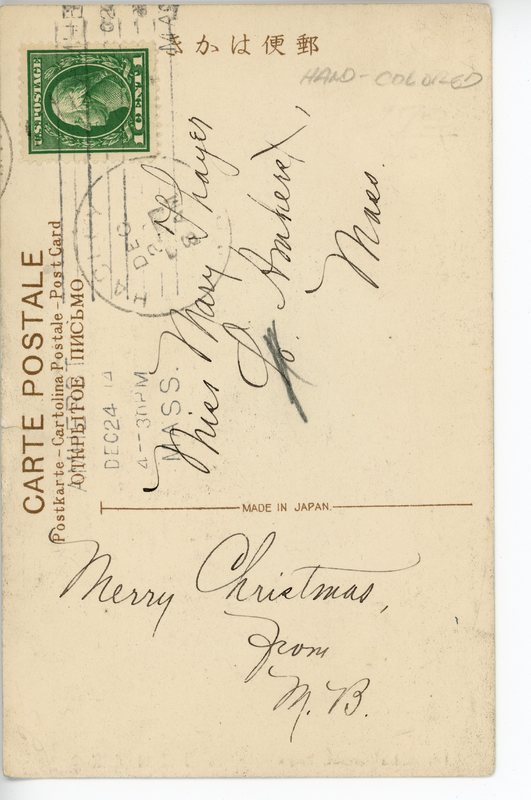 郵便はかき
HAND-COLORED
U.S. POSTAGE
1 CENT 1
CARTE POSTALE
Postkarte-Cartolina Postale-Post Card
ОТКРЫТОЕ ПИСЬМО
AMHERST
DEC 24 14
4-30PM
MASS.
Miss Mary Thayer
So. Amherst,
Mass.
MADE IN JAPAN.
Merry Christmas,
from
M. B.